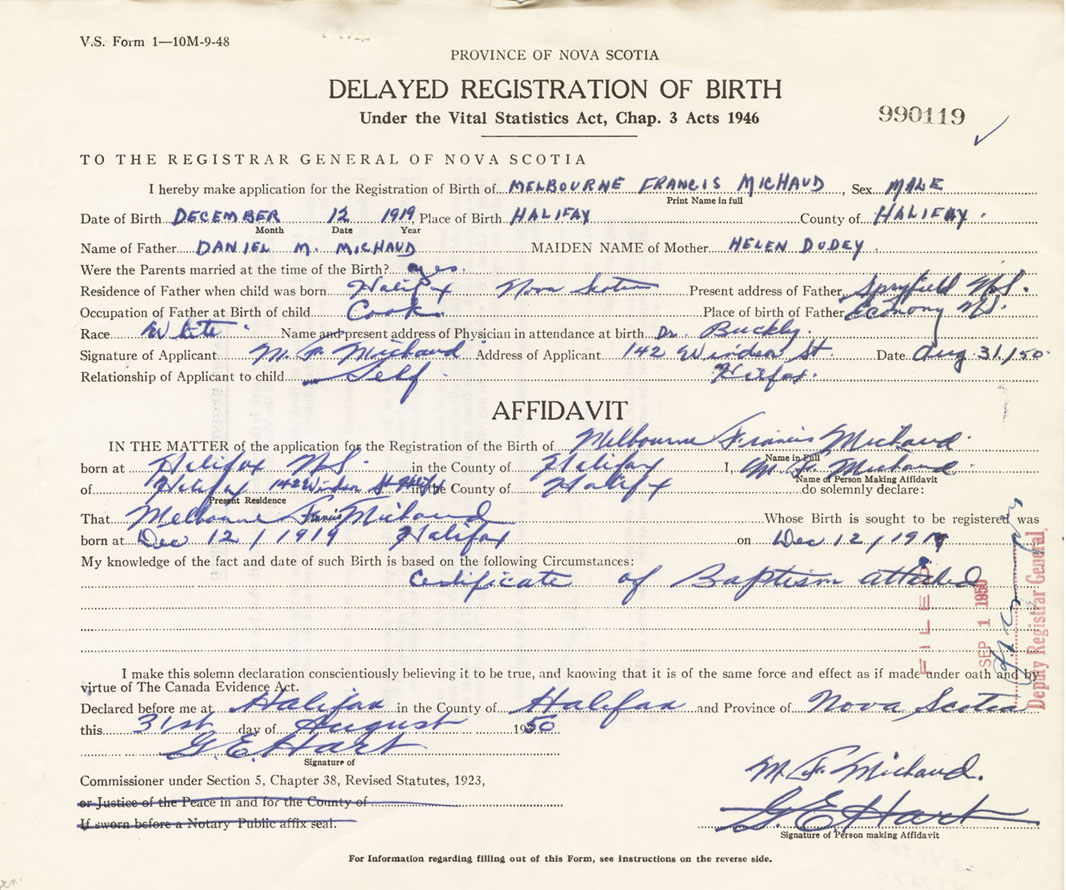 V.S. Form 1—10M-9-48
PROVINCE OF NOVA SCOTIA
DELAYED REGISTRATION OF BIRTH
Under the Vital Statistics Act, Chap. 3 Acts 1946
990119
TO THE REGISTRAR GENERAL OF NOVA SCOTIA
I hereby make application for the Registration of Birth of MELBOURNE FRANCIS MICHAUD, Sex MALE
Print Name in full
Date of Birth DECEMBER 12 1919 Place of Birth HALIFAX County of HALIFAX.
Month Date Year
Name of Father DANIEL M. MICHAUD MAIDEN NAME of Mother HELEN DUDEY
Were the Parents married at the time of the Birth? yes.
Residence of Father when child was born Halifax Nova Scotia Present address of Father Spryfield N.S.
Occupation of Father at Birth of child Cook. Place of birth of Father Economy N.S.
Race White Name and present address of Physician in attendance at birth Dr. Buckly.
Signature of Applicant M. F. Michaud Address of Applicant 142 Windsor St. Date Aug 31/50.
Relationship of Applicant to child Self. Halifax.
AFFIDAVIT
IN THE MATTER of the application for the Registration of the Birth of Melbourne Francis Michaud.
Name in Full
born at Halifax N.S. in the County of Halifax I, M. F. Michaud.
Name of Person Making Affidavit
of Halifax 142 Windsor St Hlfx in the County of Halifax do solemnly declare:
Present Residence
That Melbourne Francis Michaud Whose Birth is sought to be registered was
born at Dec 12/1919 Halifax on Dec 12/1919
My knowledge of the fact and date of such Birth is based on the following Circumstances:
Certificate of Baptism attached
FILED
SEP 1 1950
Deputy Registrar General
I make this solemn declaration conscientiously believing it to be true, and knowing that it is of the same force and effect as if made under oath and by
virtue of The Canada Evidence Act.
Declared before me at Halifax in the County of Halifax and Province of Nova Scotia
this 31st day of August 1950
G. E. Hart
Signature of
Commissioner under Section 5, Chapter 38, Revised Statutes, 1923,
or Justice of the Peace in and for the County of
If sworn before a Notary Public affix seal.
M. F. Michaud.
G E Hart
Signature of Person making Affidavit
For Information regarding filling out of this Form, see instructions on the reverse side.